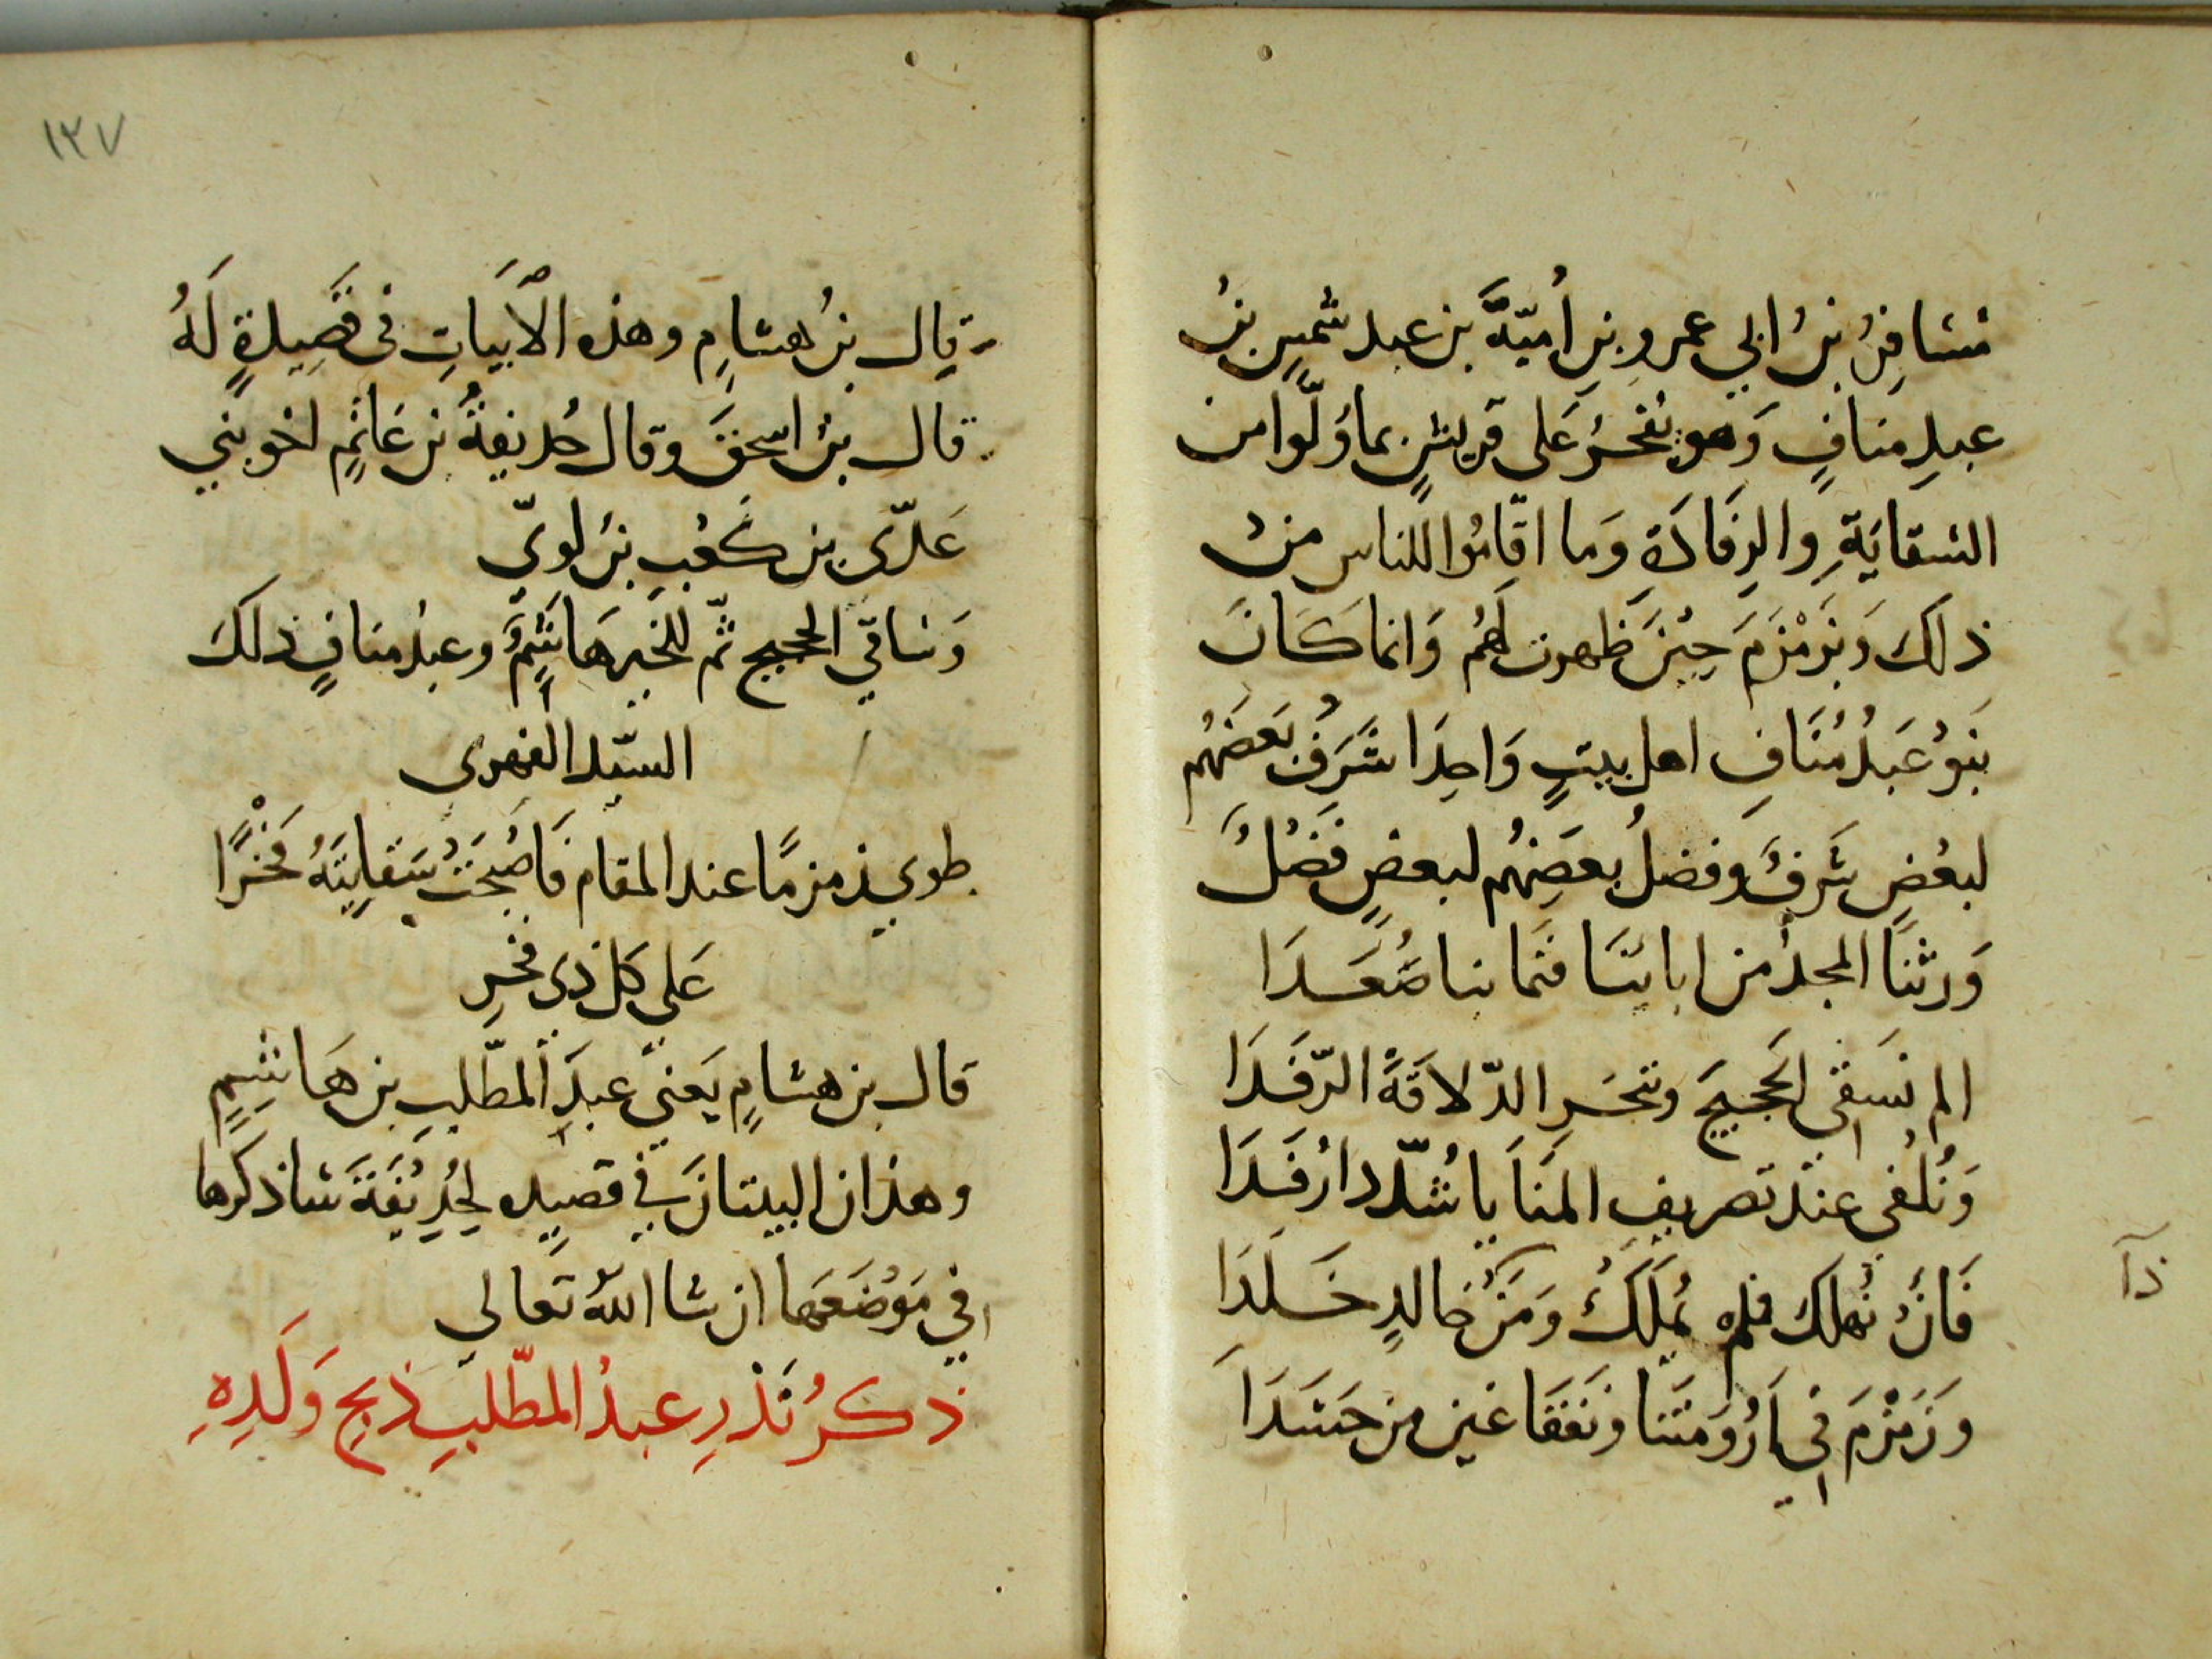 مُسَافِرُ بنُ ابي عمرو بنِ اُميّةَ بن عبد شمسِ بنُ
عبدِ منافٍ وَهو يفخرُ عَلى قريشٍ بما وُلّوا من
السقايَةِ والرِفَادَةِ وَما اقَامُوا للناس منْ
ذلك وَبزَمْزَمَ حِيْنَ ظهرت لَهُم وَانما كَانَ
بَنوُ عَبدُ مُنَافِ اهل بيتٍ وَاحِدَا شَرَفُ بَعضَهُم
لبعُضِ شَرفٌ وفضلُ بعضِهُم لبعضٍ فَضْلٌ
وَرثنَا المجدُ من ابائنَا فنَما بنا صُعَدَا
الم نسَقِي الحَجيجَ وننحَرِ الدّلاقَةً الرّفَدَا
وَنُلفي عندَ تصريفِ المنَايا شُدّدا رُفَدَا
فَانْ نُهلك فلم نُملَكْ وَمَنْ خالدٍ خَلَدَا
وزَمْزمَ في اَرُوَمتَنا ونَفقَا عَين من حَسَدَا
ذآ
١٢٧
قال بنُ هشامٍ وهذه الاَبيَاتِ فى قَصِيدةٍ لَهُ
قال بنُ اسحقَ وقال حُذيفةُ بن غَانمٍ اخو بني
عَدّى بن كعْبِ بنُ لويّ
وَسَاقي الحجيج ثّم للخَير هَاشمٌ وعبدُ منافٍ ذلكَ
السيّد الفهرى
طوي زمزمًا عند المقام فَاصْبحَتْ سَقايَتَهُ فَخْرًا
عَلي كل ذى فخرِ
قال بن هشامٍ يَعني عبدَ المطّلبِ بن هَاشمٍ
وهذان البيتانَ في قصيده لحُذِيْفَةَ ساذكرها
في مَوْضَعَها ان شا اللهُ تَعالى
ذكرُ نَذْرِ عبدُ المطّلبِ ذبح وَلَدِهِ